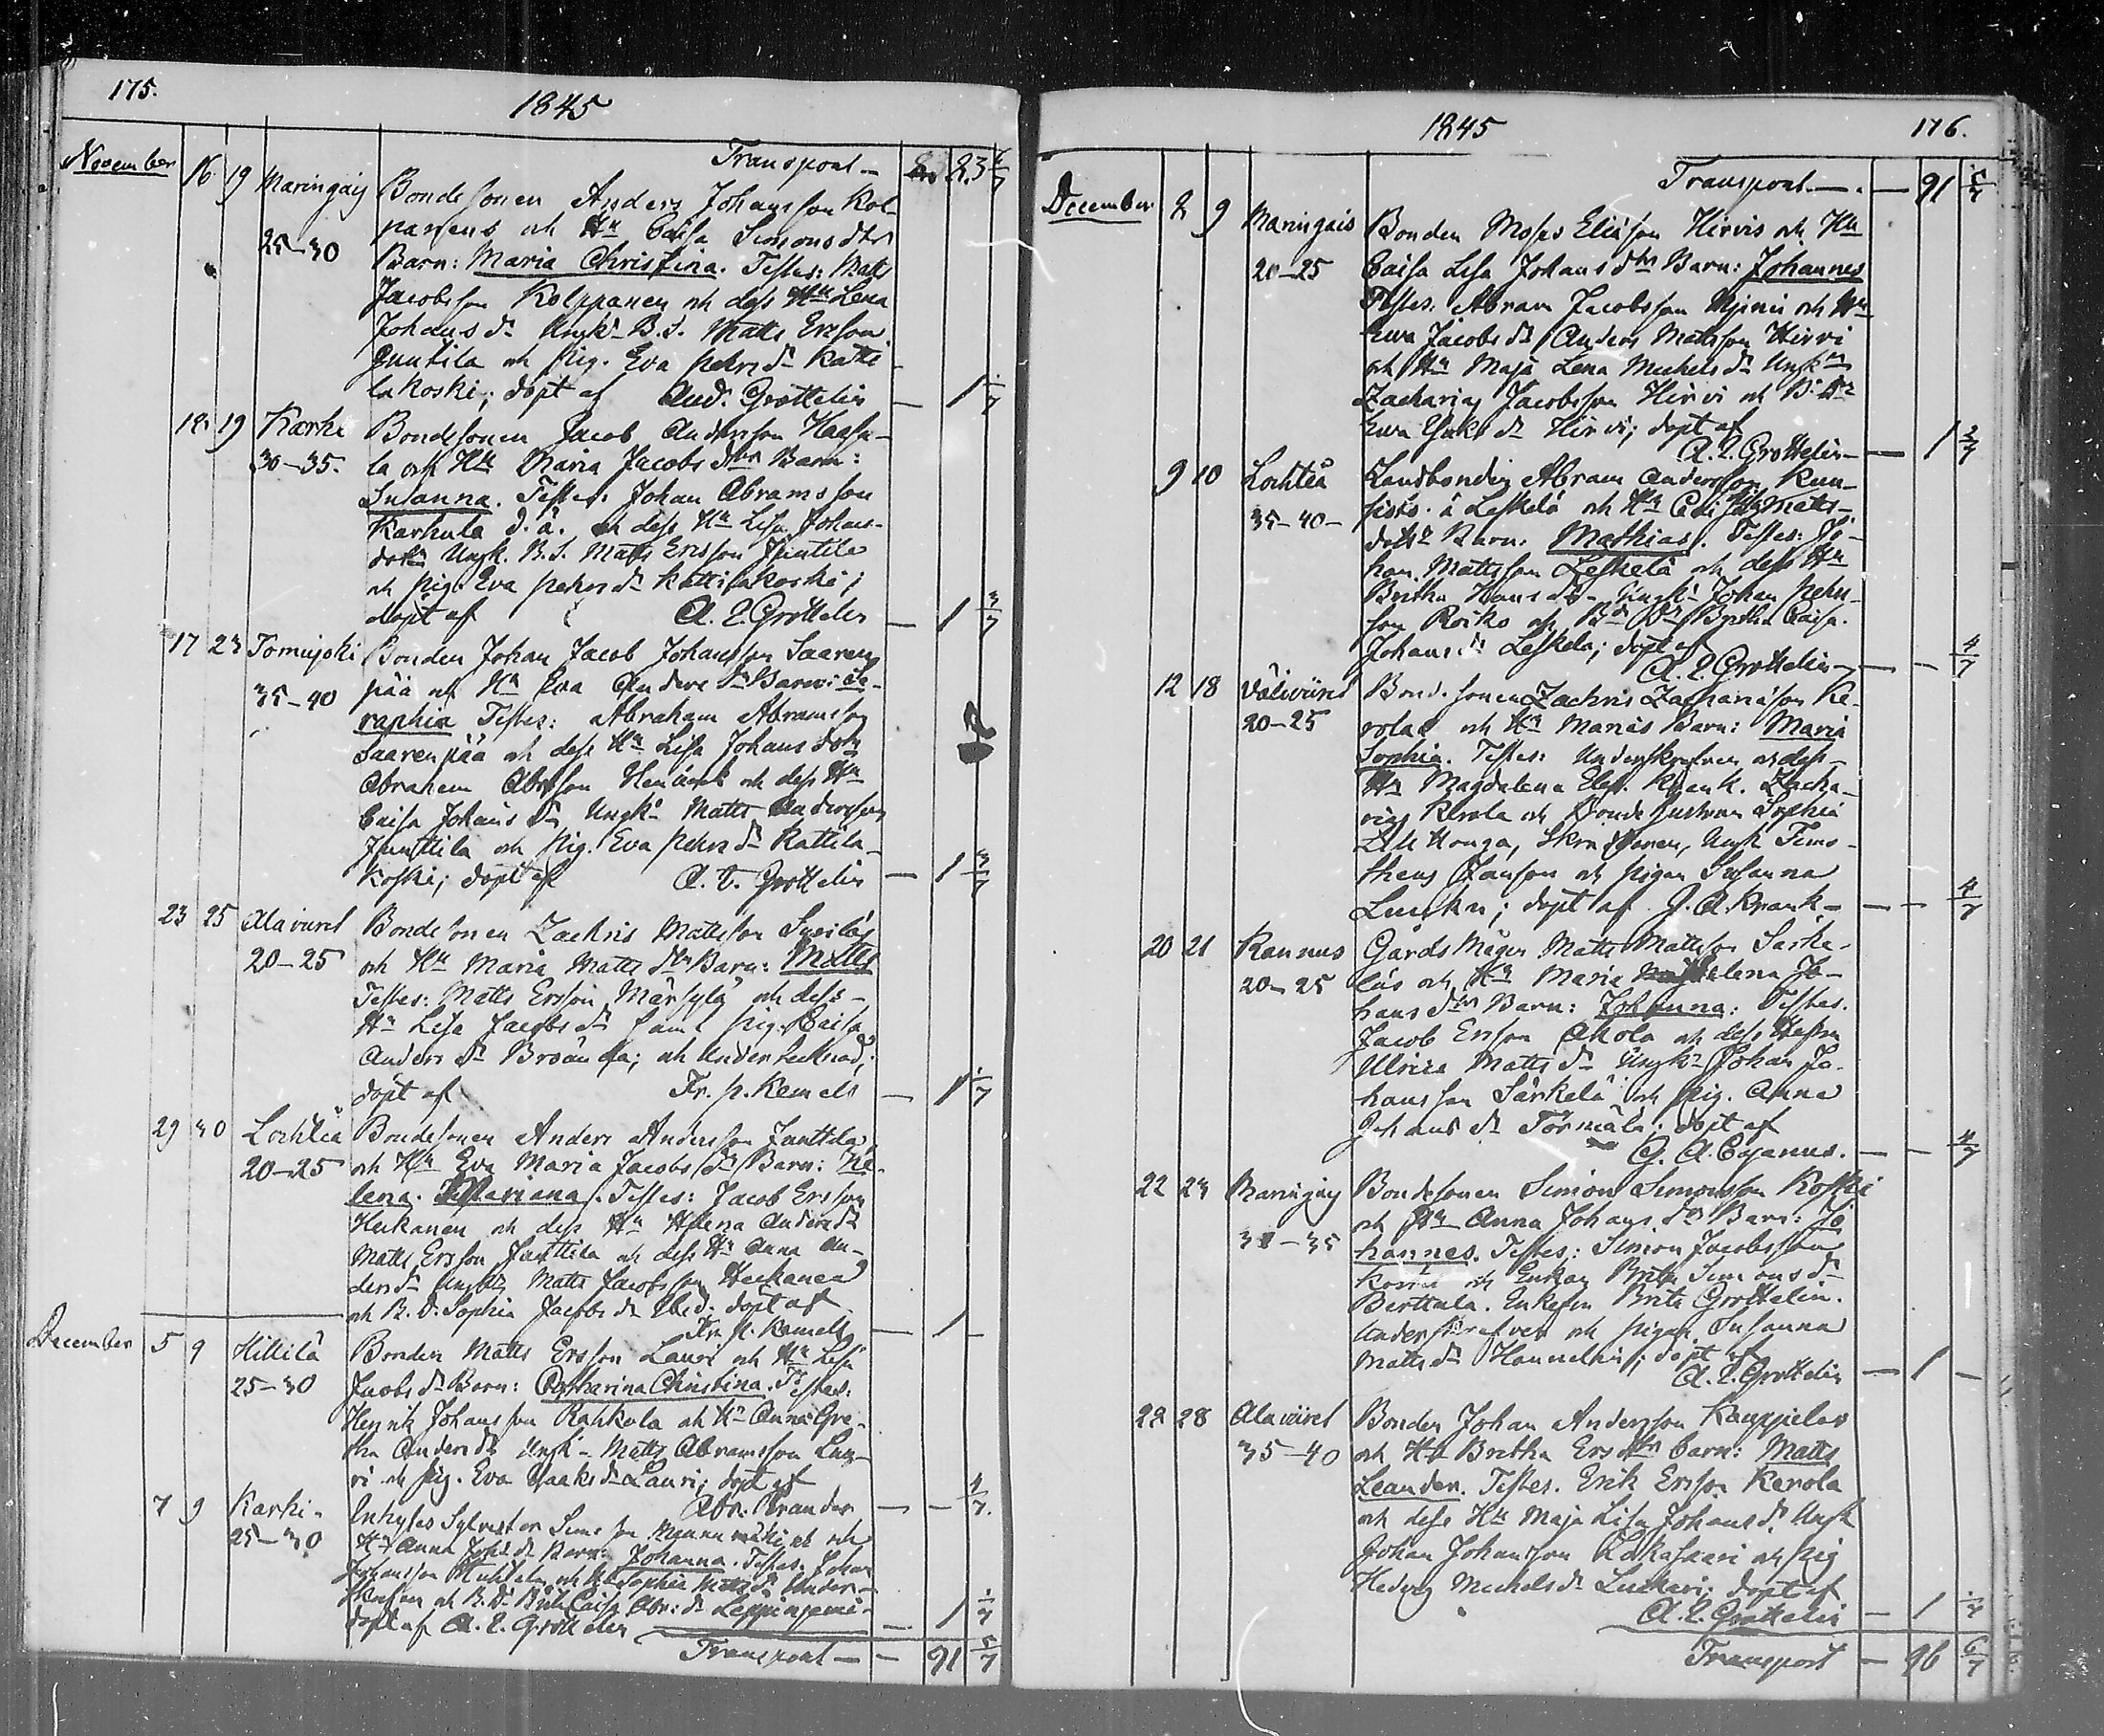 175.
1845
Transport — 83 6/7
November 16 19 Maringais Bondesonen Anders Johansson Kol-
25–30 panens och Hu Caisa Simonsdtr
Barn: Maria Christina. Testes: Matts
Jacobsson Kolppanen och dess Hu Lena
Johans dr Ungk. B.S. Matts Ersson
Junttila och Pig. Eva Pehrs dr Katti-
lakoski; döpt af And. Grottelin — 1 1/7
18 19 Karhi Bondesonen Jacob Andersson Haapa-
30–35. la och Hu Maria Jacobs dtrs Barn:
Susanna. Testes: Johan Abramsson
Karhula d.ä. och dess Hu Lisa Johans-
dotr Ungk. B.S. Matts Ersson Junttila
och Pig. Eva Pehrs dr Kattilakoski;
döpt af A. E. Grottelin — 1 3/7
17 23 Tomujoki Bonden Johan Jacob Johansson Saaren
35–40 pää och Hu Eva Anders dr Barn: Se-
raphia Testes: Abraham Abramsson
Saarenpää och dess Hu Lisa Johans dotr
Abraham Abrsson och dess Hu
Caisa Johans dr, Ungk. Matts Andersson
Junttila och Pig. Eva Pehrs dr Kattila-
koski; döpt af A. E. Grottelin — 1 3/7
23 25 Alaviiret Bondesonen Zachris Mattsson
20–25 och Hu Maria Matts dtrs Barn: Matts
Testes: Matts Ersson Märsylä och dess
Hu Lisa Jacobs dr samt Pig. Caisa
Anders dr och Undertecknad;
döpt af Fr. P. Kemell — 1 1/7
29 30 Lochteå Bondesonen Anders Andersson Junttila
20–25 och Hu Eva Maria Jacobs dr Barn: He-
lena Mariana. Testes: Jacob Ersson
Heikanen och dess Hu Helena Anders dr
Matts Ersson Junttila och dess Hu Anna An-
ders dr Ungk. Matts Jacobsson Heikanen
och B. D. Sophia Jacobs dr ibid. döpt af
Fr. P. Kemell — 1 —
December 5 9 Hillilä Bonden Matts Ersson Lauri och Hu Lisa
25–30 Jacobs dr Barn: Catharina Christina. Testes:
Henrik Johansson Rahkola och Hu Anna Gre-
tha Anders dr Ungk. Matts Abramsson Lau-
ri och Pig. Eva Isaks dr Lauri; döpt af
Abr. Brander — — 4/7.
7 9 Karhi- Inhyses Sylvester Simsson och
25–30 Hu Anna Joh. dr Barn: Johanna. Testes. Johan
Johansson och Hu Sophia Matts dr Under-
skrefven och B. Dr Brita Caisa Abr. dr
döpt af A. E. Grottelin — 1 1/7
Transport — — 91 5/7
1845
176.
Transport — — 91 5/7
December 8 9 Maringais Bonden Moses Eliasson Hirvis och Hu
20–25 Caisa Lisa Johans dtrs Barn: Johannes
Testes. Abram Jacobsson och Hu
Ewa Jacobs dr Anders Mattsson Hirvi
och Hu Maja Lena Michels dr Ungkn
Zacharias Jacobsson Hirvi och B. Dr
Ewa Isaks dr Hirvi; döpt af
A. E. Grottelin — 1 3/7
9 10 Lochteå Landbonden Abram Andersson
35–40 å Leskelä och Hu Caisa Matts-
dottr Barn: Mathias. Testes: Jo-
han Mattsson Leskelä och dess Hu
Britha Hans dr Ungk. Johan Pehrs-
son Roiko och Bd Dr Britha Caisa
Johans dr Leskelä; döpt af
A. E. Grottelin — — 4/7
12 18 Väliviiret Bond. sonen Zachris Zachariasson Ke-
20–25 rolas och Hu Marias Barn: Maria
Sophia. Testes: Underskrefven och dess
Hu Magdalena Elis. Krank. Zacha-
rias Kerola och Bonde hustrun Sophia
Honga, Ungk Timo-
theus Jansson och Pigan Susanna
döpt af J. A. Krank — — 4/7
20 21 Kannus Gårds Mågen Matts Mattsson Särke-
20–25 läs och Hu Maria Magdalena Jo-
hans dtrs Barn: Johanna: Testes.
Jacob Ersson Akola och dess Husru
Ulrica Matts dr Ungk. Johan Jo-
hansson Särkelä och Pig. Anna
Johans dr Törmälä; döpt af
G. A. Cajanus. — — 4/7
22 23 Maringais Bondesonen Simon Simonsson Koski
30–35 och Hu Anna Johans dr Barn: Jo
hannes. Testes: Simon Jacobsson
Koski och Enkan Brita Simons dr
Berttula. Enkefru Brita Grottelin.
Underskrefven och Pigan Susanna
Matts dr döpt af
A. E. Grottelin — 1 —
28 28 Alaviiret Bonden Johan Andersson Kauppilas
35–40 och Hu Britha Ers dtrs barn: Matts
Leander. Testes. Erik Ersson Kerola
och dess Hu Maja Lisa Johans dr. Ungk
Johan Johansson och Pig
Hedvig Michels dr döpt af
A. E. Grottelin — 1 1/7
Transport — 96 6/7